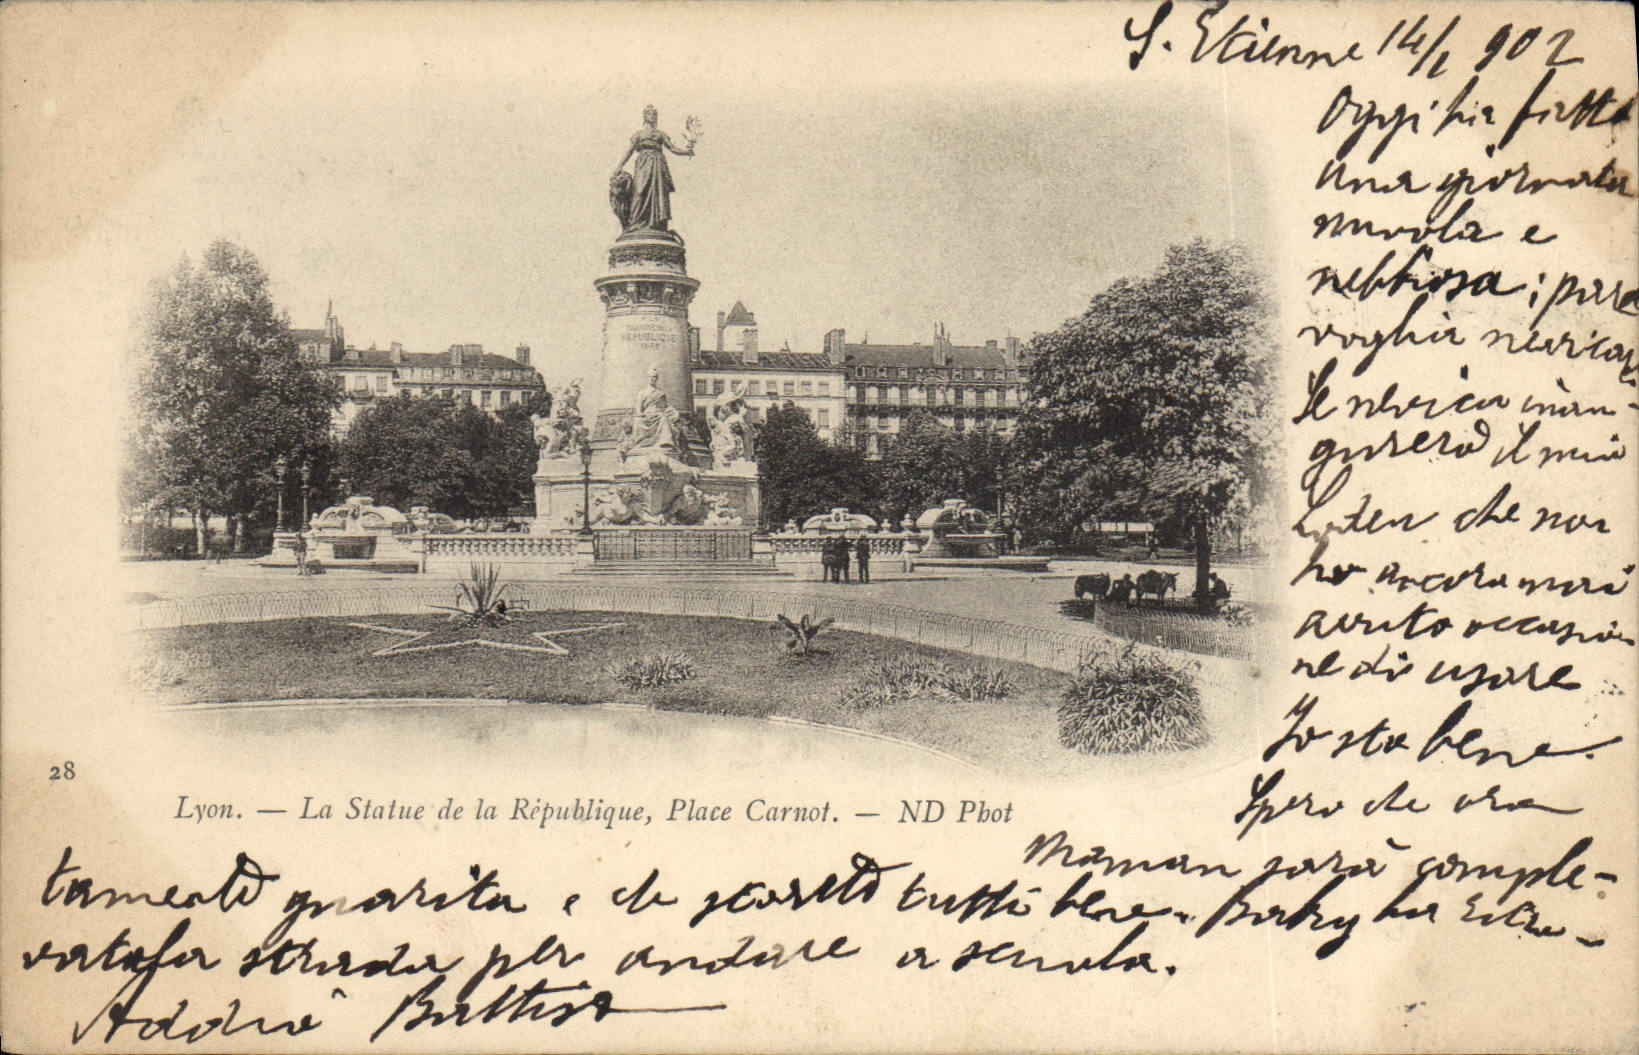 S. Etienne 14/1 902
Oggi ha fatto
una giornata
nuvola e
nebbiosa; pare
voglia nevicar
Se nevica inau-
gurerò il mio
Loden che non
ho ancora mai
avuto occasio-
ne di usare
Io sto bene.
Spero che ora
Maman sarà comple-
tamente guarita e che starete tutti bene. Baby ha
vato la strada per andare a scuola.
Addio Battista
A LA
GLOIRE DE LA
REPUBLIQUE
1889
28
Lyon. — La Statue de la République, Place Carnot. — ND Phot